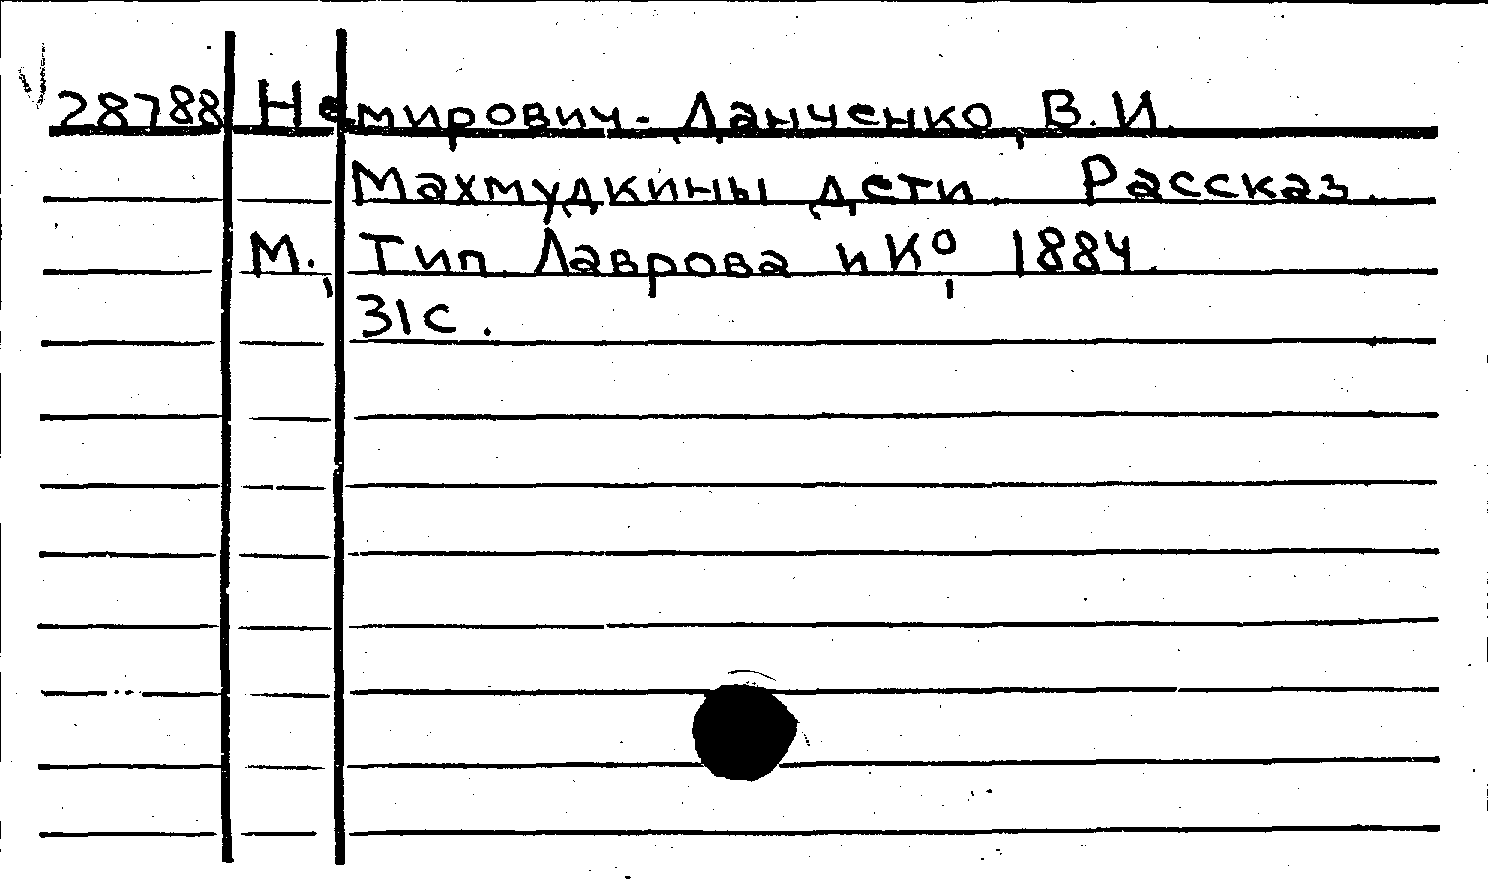 28788 Немирович-Данченко, В.И.
Махмудкины дети. Рассказ.
М., Тип. Лаврова и К°, 1884.
31с.